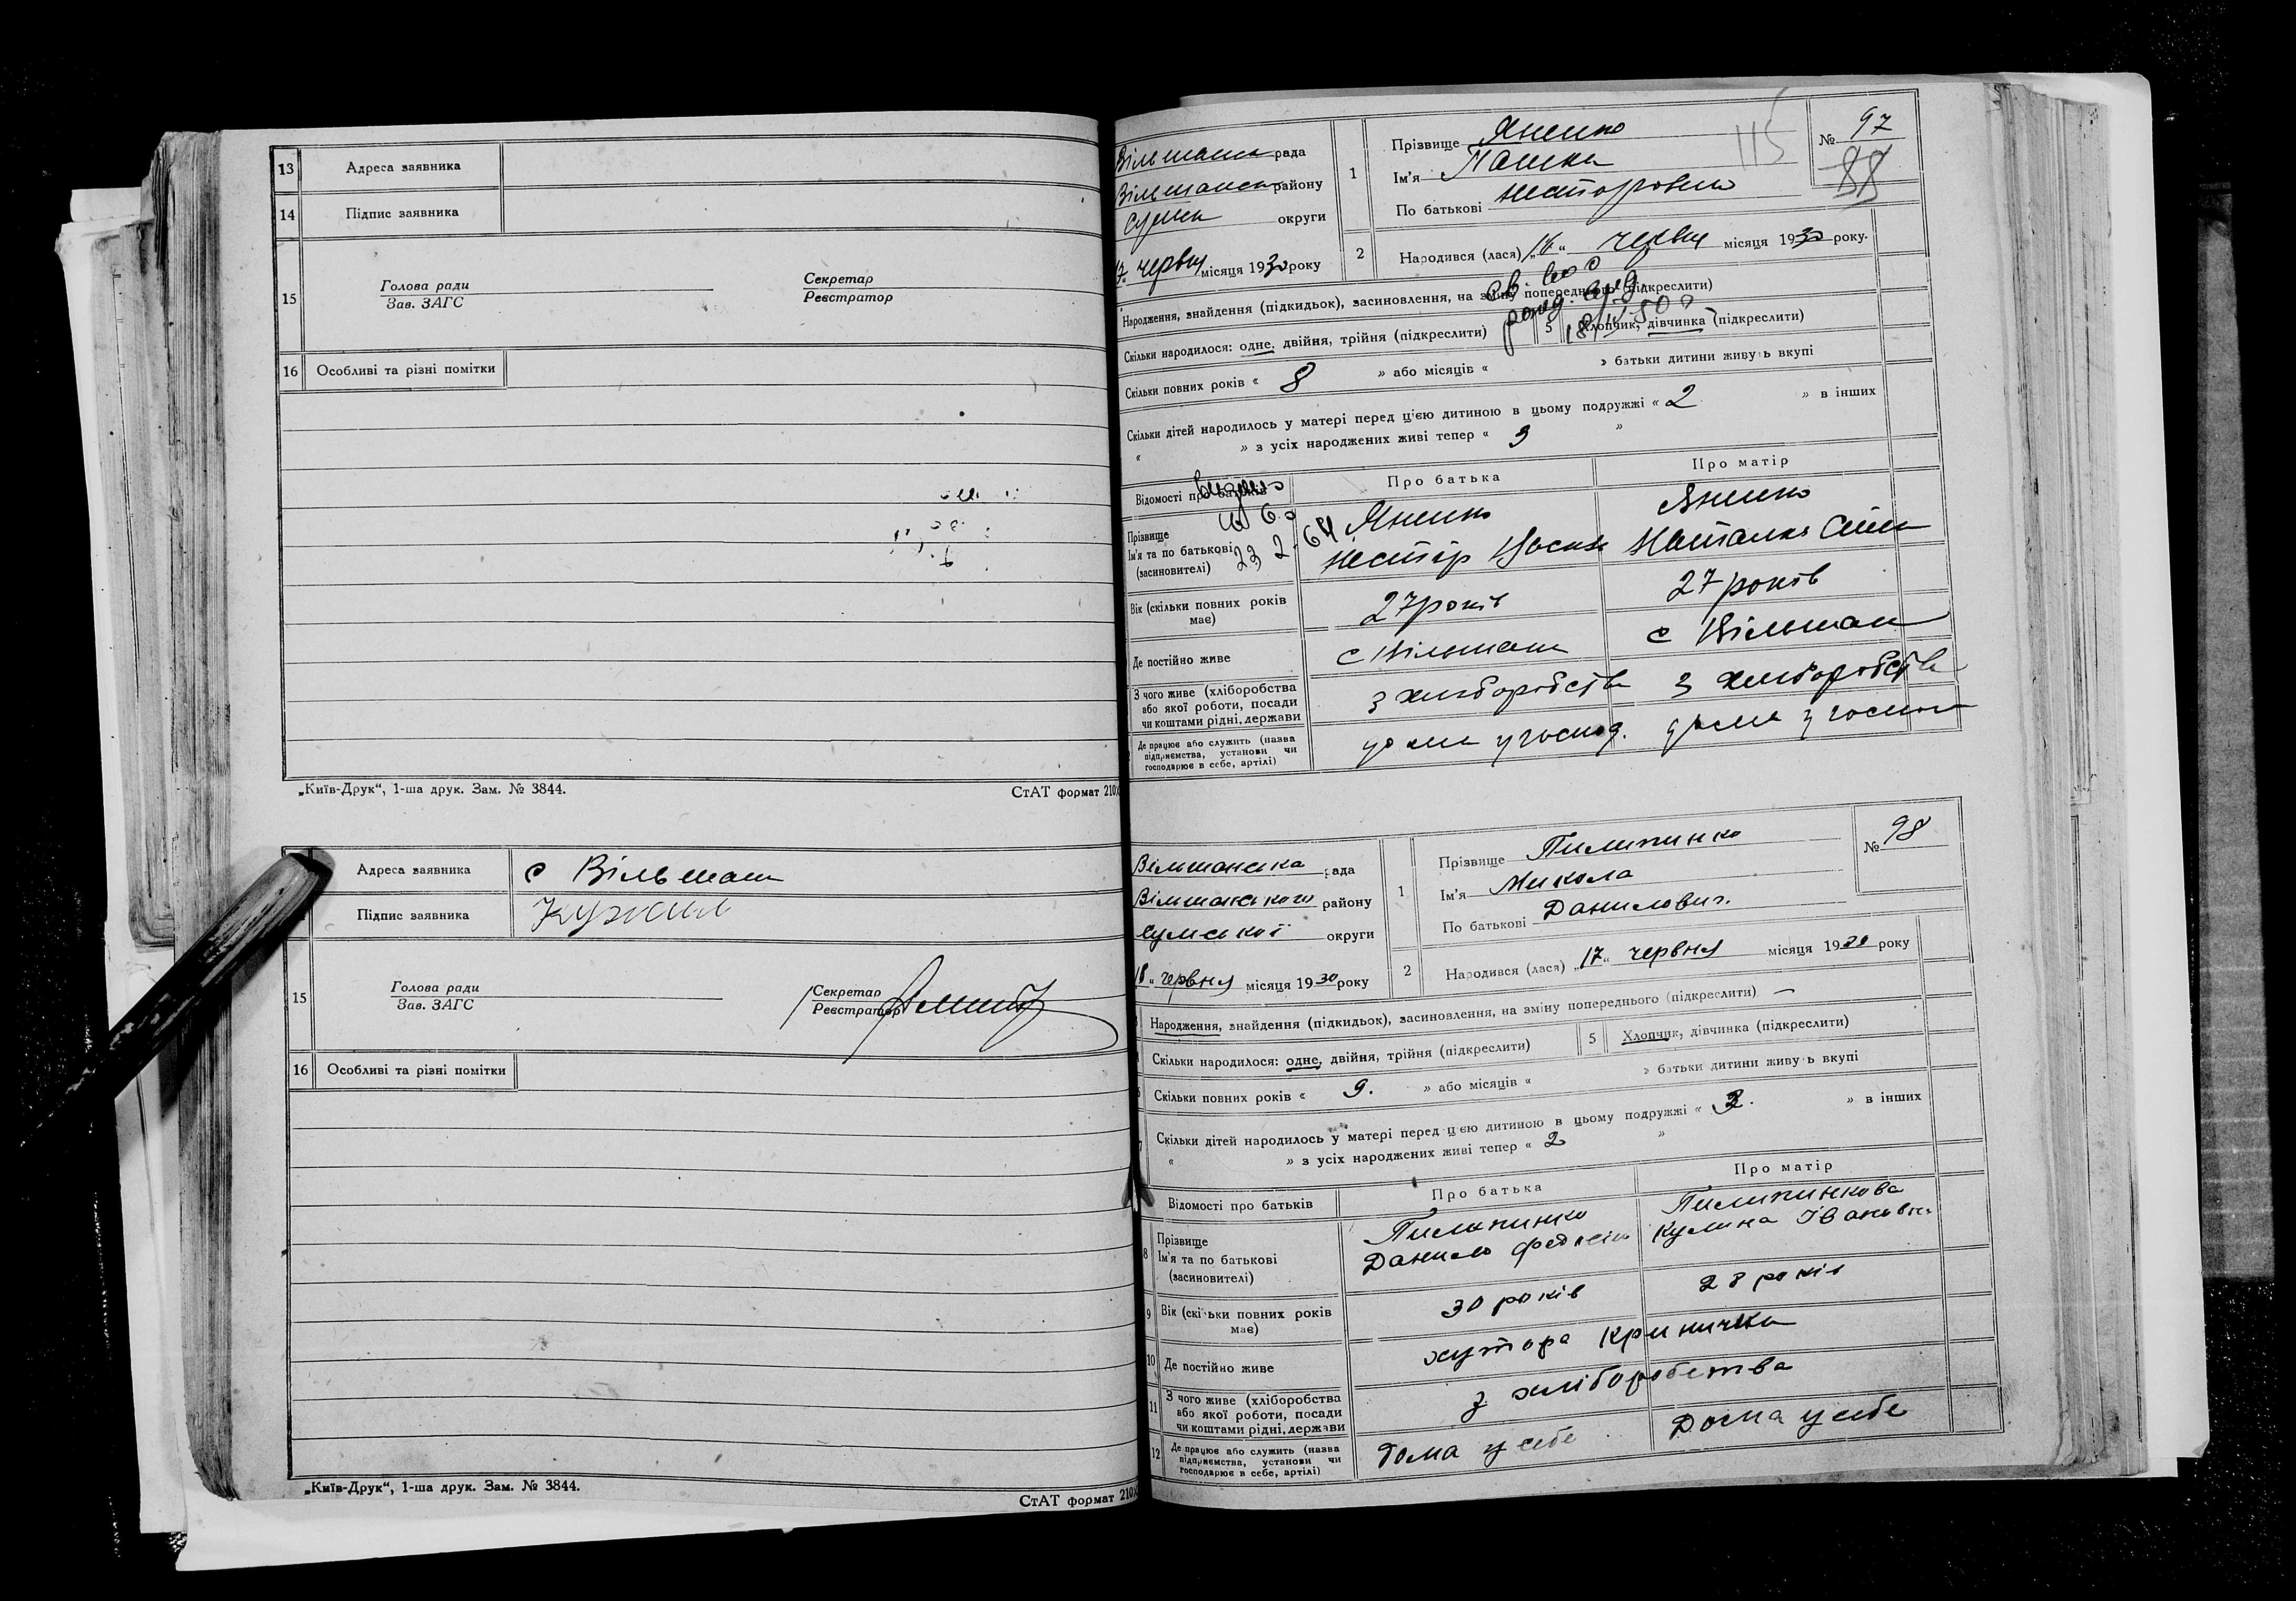 13 Адреса заявника
14 Підпис заявника
15 Голова ради
Зав. ЗАГС
Секретар
Реєстратор
16 Особливі та різні помітки
„Київ-Друк“, 1-ша друк. Зам. № 3844.
СтАТ формат 210
Адреса заявника с Вільшани
Підпис заявника
15 Голова ради
Зав. ЗАГС
Секретар
Реєстратор
16 Особливі та різні помітки
„Київ-Друк“, 1-ша друк. Зам. № 3844.
СтАТ формат 210
рада
району
округи
17 червня місяця 1930 року
115
1 Прізвище Яненко
Ім'я
По батькові
№ 97
88
2 Народився (лася) „16“ червня місяця 1930 року.
Народження, знайдення (підкидьок), засиновлення, на зміну попереднього (підкреслити)
Скільки народилося: одне, двійня, трійня (підкреслити)
5 Хлопчик, дівчинка (підкреслити)
Скільки повних років « 8 » або місяців « » батьки дитини живуть вкупі
Скільки дітей народилось у матері перед цією дитиною в цьому подружжі « 2 » в інших
« » з усіх народжених живі тепер « 3 »
Відомості про батьків
Про батька
Про матір
Прізвище
Ім'я та по батькові
(засиновителі)
Яненко
Нестір
Яненко
Наталка
Вік (скільки повних років має)
27 років
27 років
Де постійно живе
с Вільшани
с Вільшани
З чого живе (хліборобства або якої роботи, посади чи коштами рідні, держави
з хліборобства
з хліборобства
Де працює або служить (назва підприємства, установи чи господарює в себе, артілі)
Вільшанська рада
Вільшанського району
Сумської округи
18 „ червня місяця 1930 року
1 Прізвище Пилипинко
Ім'я Микола
По батькові Данилович.
№ 98
2 Народився (лася) „17“ червня місяця 1930 року
Народження, знайдення (підкидьок), засиновлення, на зміну попереднього (підкреслити)
Скільки народилося: одне, двійня, трійня (підкреслити)
5 Хлопчик, дівчинка (підкреслити)
Скільки повних років « 9. » або місяців « » батьки дитини живуть вкупі
Скільки дітей народилось у матері перед цією дитиною в цьому подружжі « 3. » в інших
« » з усіх народжених живі тепер « 2 »
Відомості про батьків
Про батька
Про матір
8 Прізвище
Ім'я та по батькові
(засиновителі)
Пилипинко
Данило
Пилипинкова
Кулина Івановн.
9 Вік (скільки повних років має)
30 років
28 років
10 Де постійно живе
хутора Кринички
11 З чого живе (хліборобства або якої роботи, посади чи коштами рідні, держави
з хліборобства
12 Де працює або служить (назва підприємства, установи чи господарює в себе, артілі)
Дома у себе
Дома у себе